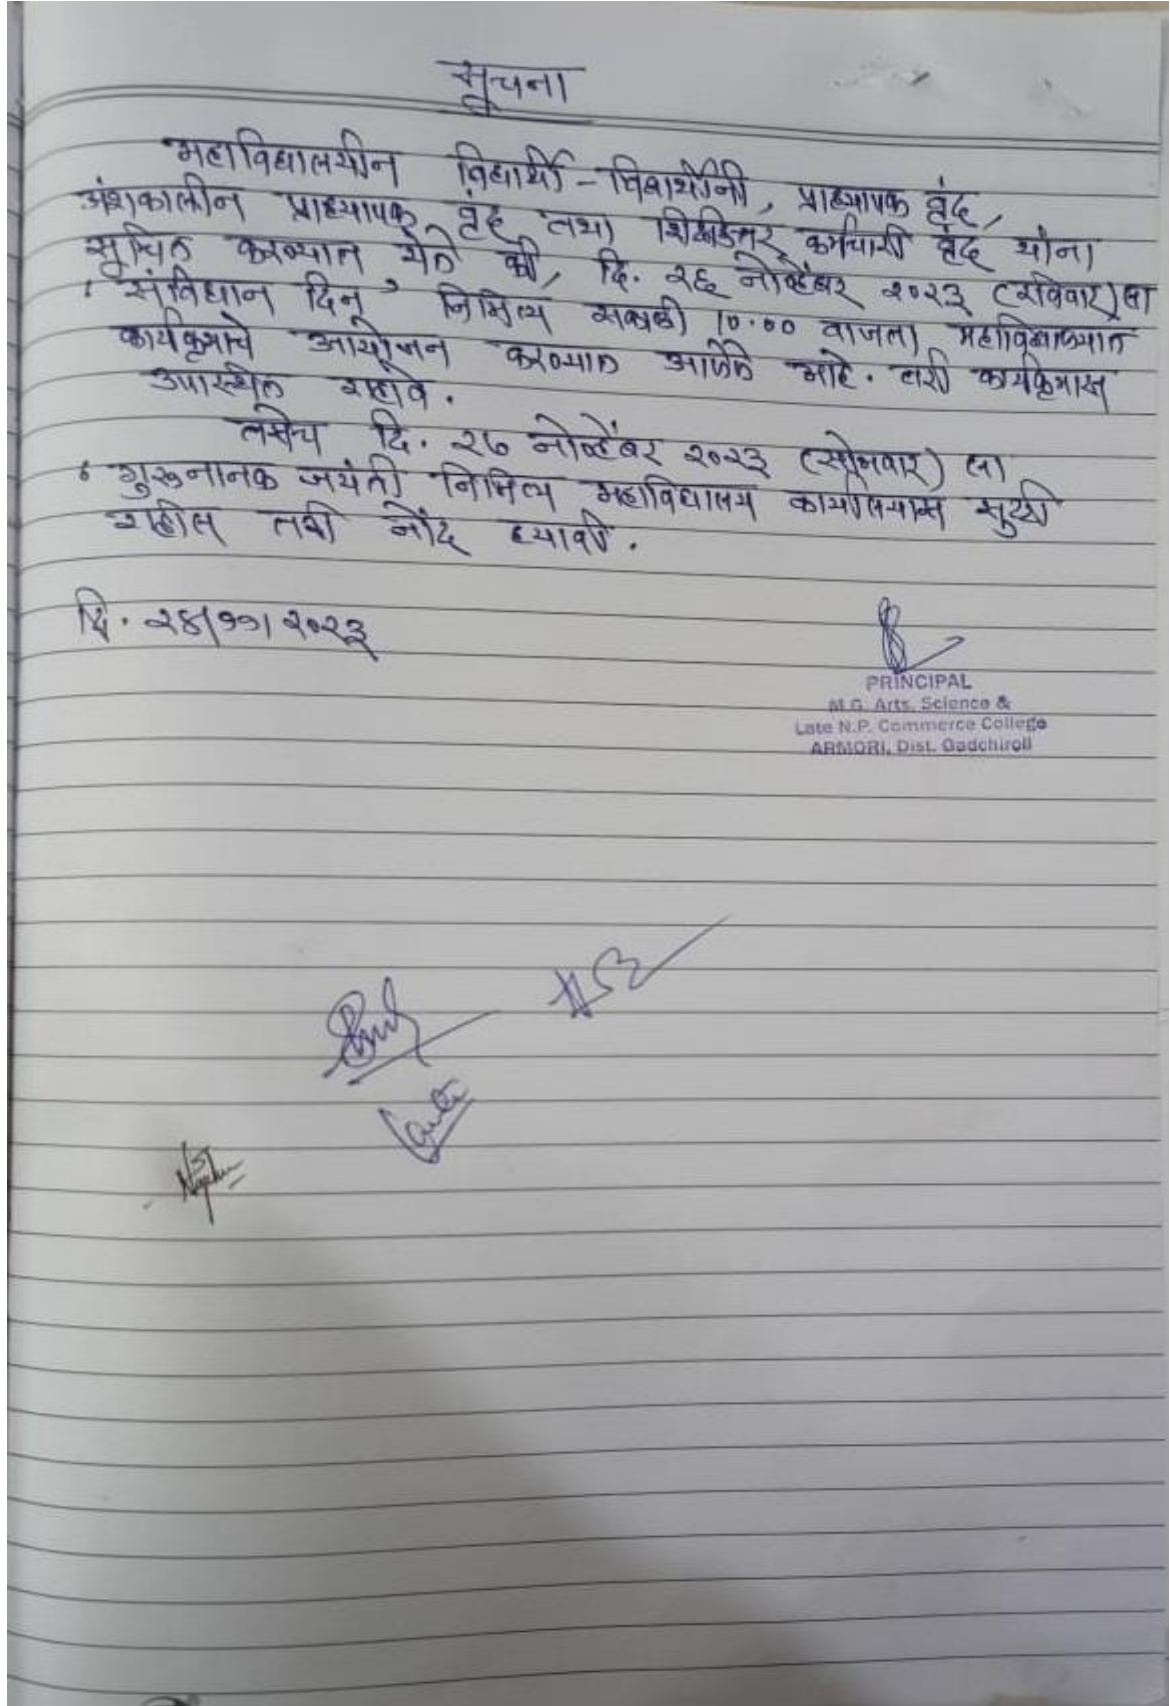 सूचना
महाविद्यालयीन विद्यार्थी - विद्यार्थीनी, प्राध्यापक वृंद,
अंशकालीन प्राध्यापक वृंद तथा शिक्षकेत्तर कर्मचारी वृंद यांना
सूचित करण्यात येते की, दि. २६ नोव्हेंबर २०२३ (रविवार) ला
' संविधान दिन ' निमित्य सकाळी 10.00 वाजता महाविद्यालयात
कार्यक्रमाचे आयोजन करण्यात आलेले आहे. तरी कार्यक्रमास
उपास्थित राहावे.
तसेच दि. २७ नोव्हेंबर २०२३ (सोमवार) ला
' गुरुनानक जयंती निमित्य महाविद्यालय कार्यालयास सुट्टी
राहील तशी नोंद घ्यावी.
दि. २४/११/२०२३
PRINCIPAL
M.G. Arts, Science &
Late N.P. Commerce College
ARMORI, Dist. Gadchiroli